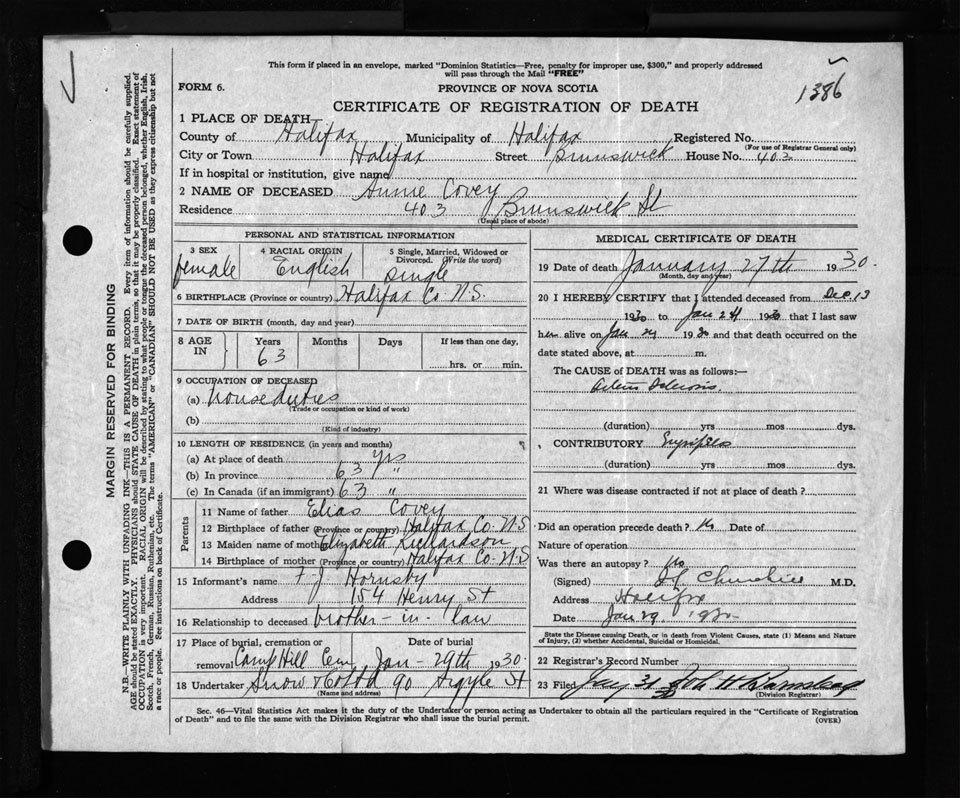 This form if placed in an envelope, marked "Dominion Statistics—Free, penalty for improper use, $300," and properly addressed
will pass through the Mail "FREE"
FORM 6.
PROVINCE OF NOVA SCOTIA
1386
CERTIFICATE OF REGISTRATION OF DEATH
1 PLACE OF DEATH
County of Halifax Municipality of Halifax Registered No.
(For use of Registrar General only)
City or Town Halifax Street Brunswick House No. 403
If in hospital or institution, give name
2 NAME OF DECEASED Annie Covey
Residence 403 Brunswick St
(Usual place of abode)
PERSONAL AND STATISTICAL INFORMATION
3 SEX female
4 RACIAL ORIGIN English
5 Single, Married, Widowed or Divorced. (Write the word) single
6 BIRTHPLACE (Province or country) Halifax Co N.S.
7 DATE OF BIRTH (month, day and year)
8 AGE IN Years Months Days If less than one day,
63 hrs. or min.
9 OCCUPATION OF DECEASED
(a) house duties
(Trade or occupation or kind of work)
(b)
(Kind of industry)
10 LENGTH OF RESIDENCE (in years and months)
(a) At place of death yrs
(b) In province 63 "
(c) In Canada (if an immigrant) 63 "
Parents
11 Name of father Elias Covey
12 Birthplace of father (Province or country) Halifax Co N.S
13 Maiden name of mother Elizabeth Richardson
14 Birthplace of mother (Province or country) Halifax Co N.S
15 Informant's name F J Hornsby
Address 154 Henry St
16 Relationship to deceased brother-in-law
17 Place of burial, cremation or Date of burial
removal Camp Hill Cem Jan-29th 1930.
18 Undertaker Snow & Co Ltd 90 Argyle St
(Name and address)
MEDICAL CERTIFICATE OF DEATH
19 Date of death January 27th 1930.
(Month, day and year)
20 I HEREBY CERTIFY that I attended deceased from Dec 13
1930 to Jan 24 1930 that I last saw
her alive on Jan 1930 and that death occurred on the
date stated above, at m.
The CAUSE of DEATH was as follows:—
(duration) yrs mos dys.
CONTRIBUTORY
(duration) yrs mos dys.
21 Where was disease contracted if not at place of death?
Did an operation precede death? No Date of
Nature of operation
Was there an autopsy? No
(Signed) Churchill M.D.
Address Halifax
Date Jan 29 1930
State the Disease causing Death, or in death from Violent Causes, state (1) Means and Nature
of Injury, (2) whether Accidental, Suicidal or Homicidal.
22 Registrar's Record Number
23 Filed Jany 31 30
(Division Registrar)
Sec. 46—Vital Statistics Act makes it the duty of the Undertaker or person acting as Undertaker to obtain all the particulars required in the "Certificate of Registration
of Death" and to file the same with the Division Registrar who shall issue the burial permit.
(OVER)
MARGIN RESERVED FOR BINDING
N.B.—WRITE PLAINLY WITH UNFADING INK—THIS IS A PERMANENT RECORD. Every item of information should be carefully supplied.
AGE should be stated EXACTLY. PHYSICIANS should STATE CAUSE OF DEATH in plain terms, so that it may be properly classified. Exact statement of
OCCUPATION is very important. RACIAL ORIGIN will be described by stating to what people or tongue the deceased person belonged, whether English, Irish,
Scotch, French, German, Russian, Ruthenian, etc. The terms "AMERICAN" or "CANADIAN" SHOULD NOT BE USED as they express citizenship but not
a race or people. See instructions on back of Certificate.